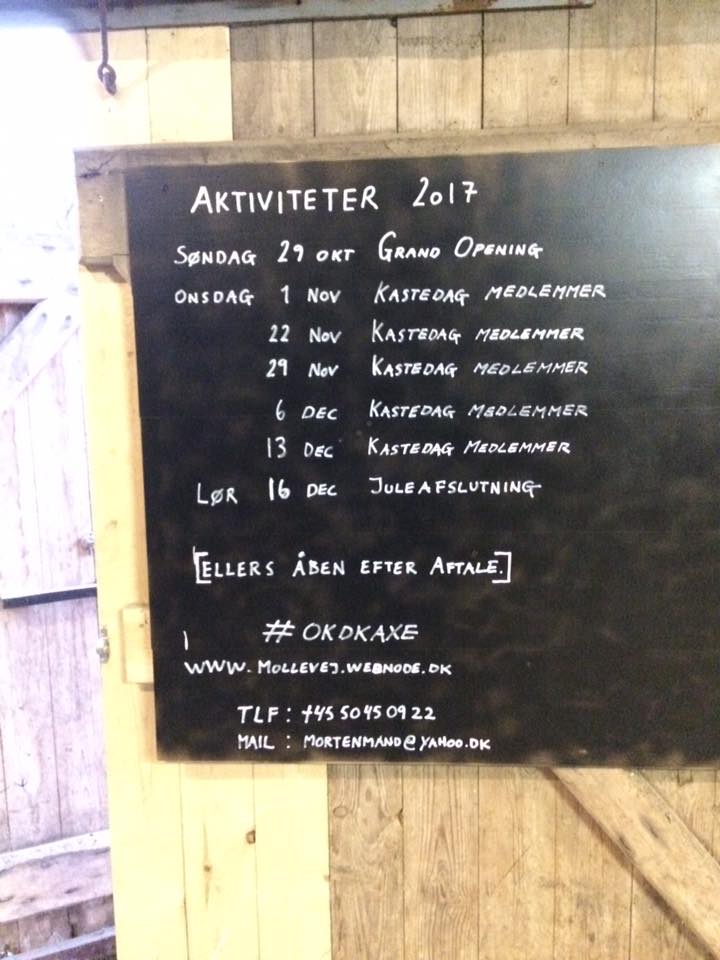 AKTIVITETER 2017
SØNDAG 29 OKT GRAND OPENING
ONSDAG 1 NOV KASTEDAG MEDLEMMER
22 NOV KASTEDAG MEDLEMMER
29 NOV KASTEDAG MEDLEMMER
6 DEC KASTEDAG MEDLEMMER
13 DEC KASTEDAG MEDLEMMER
LØR 16 DEC JULEAFSLUTNING
[ELLERS ÅBEN EFTER AFTALE.]
# OKDKAXE
WWW.MOLLEVEJ.WEBNODE.DK
TLF : +45 50 45 09 22
MAIL : MORTENMAND@YAHOO.DK